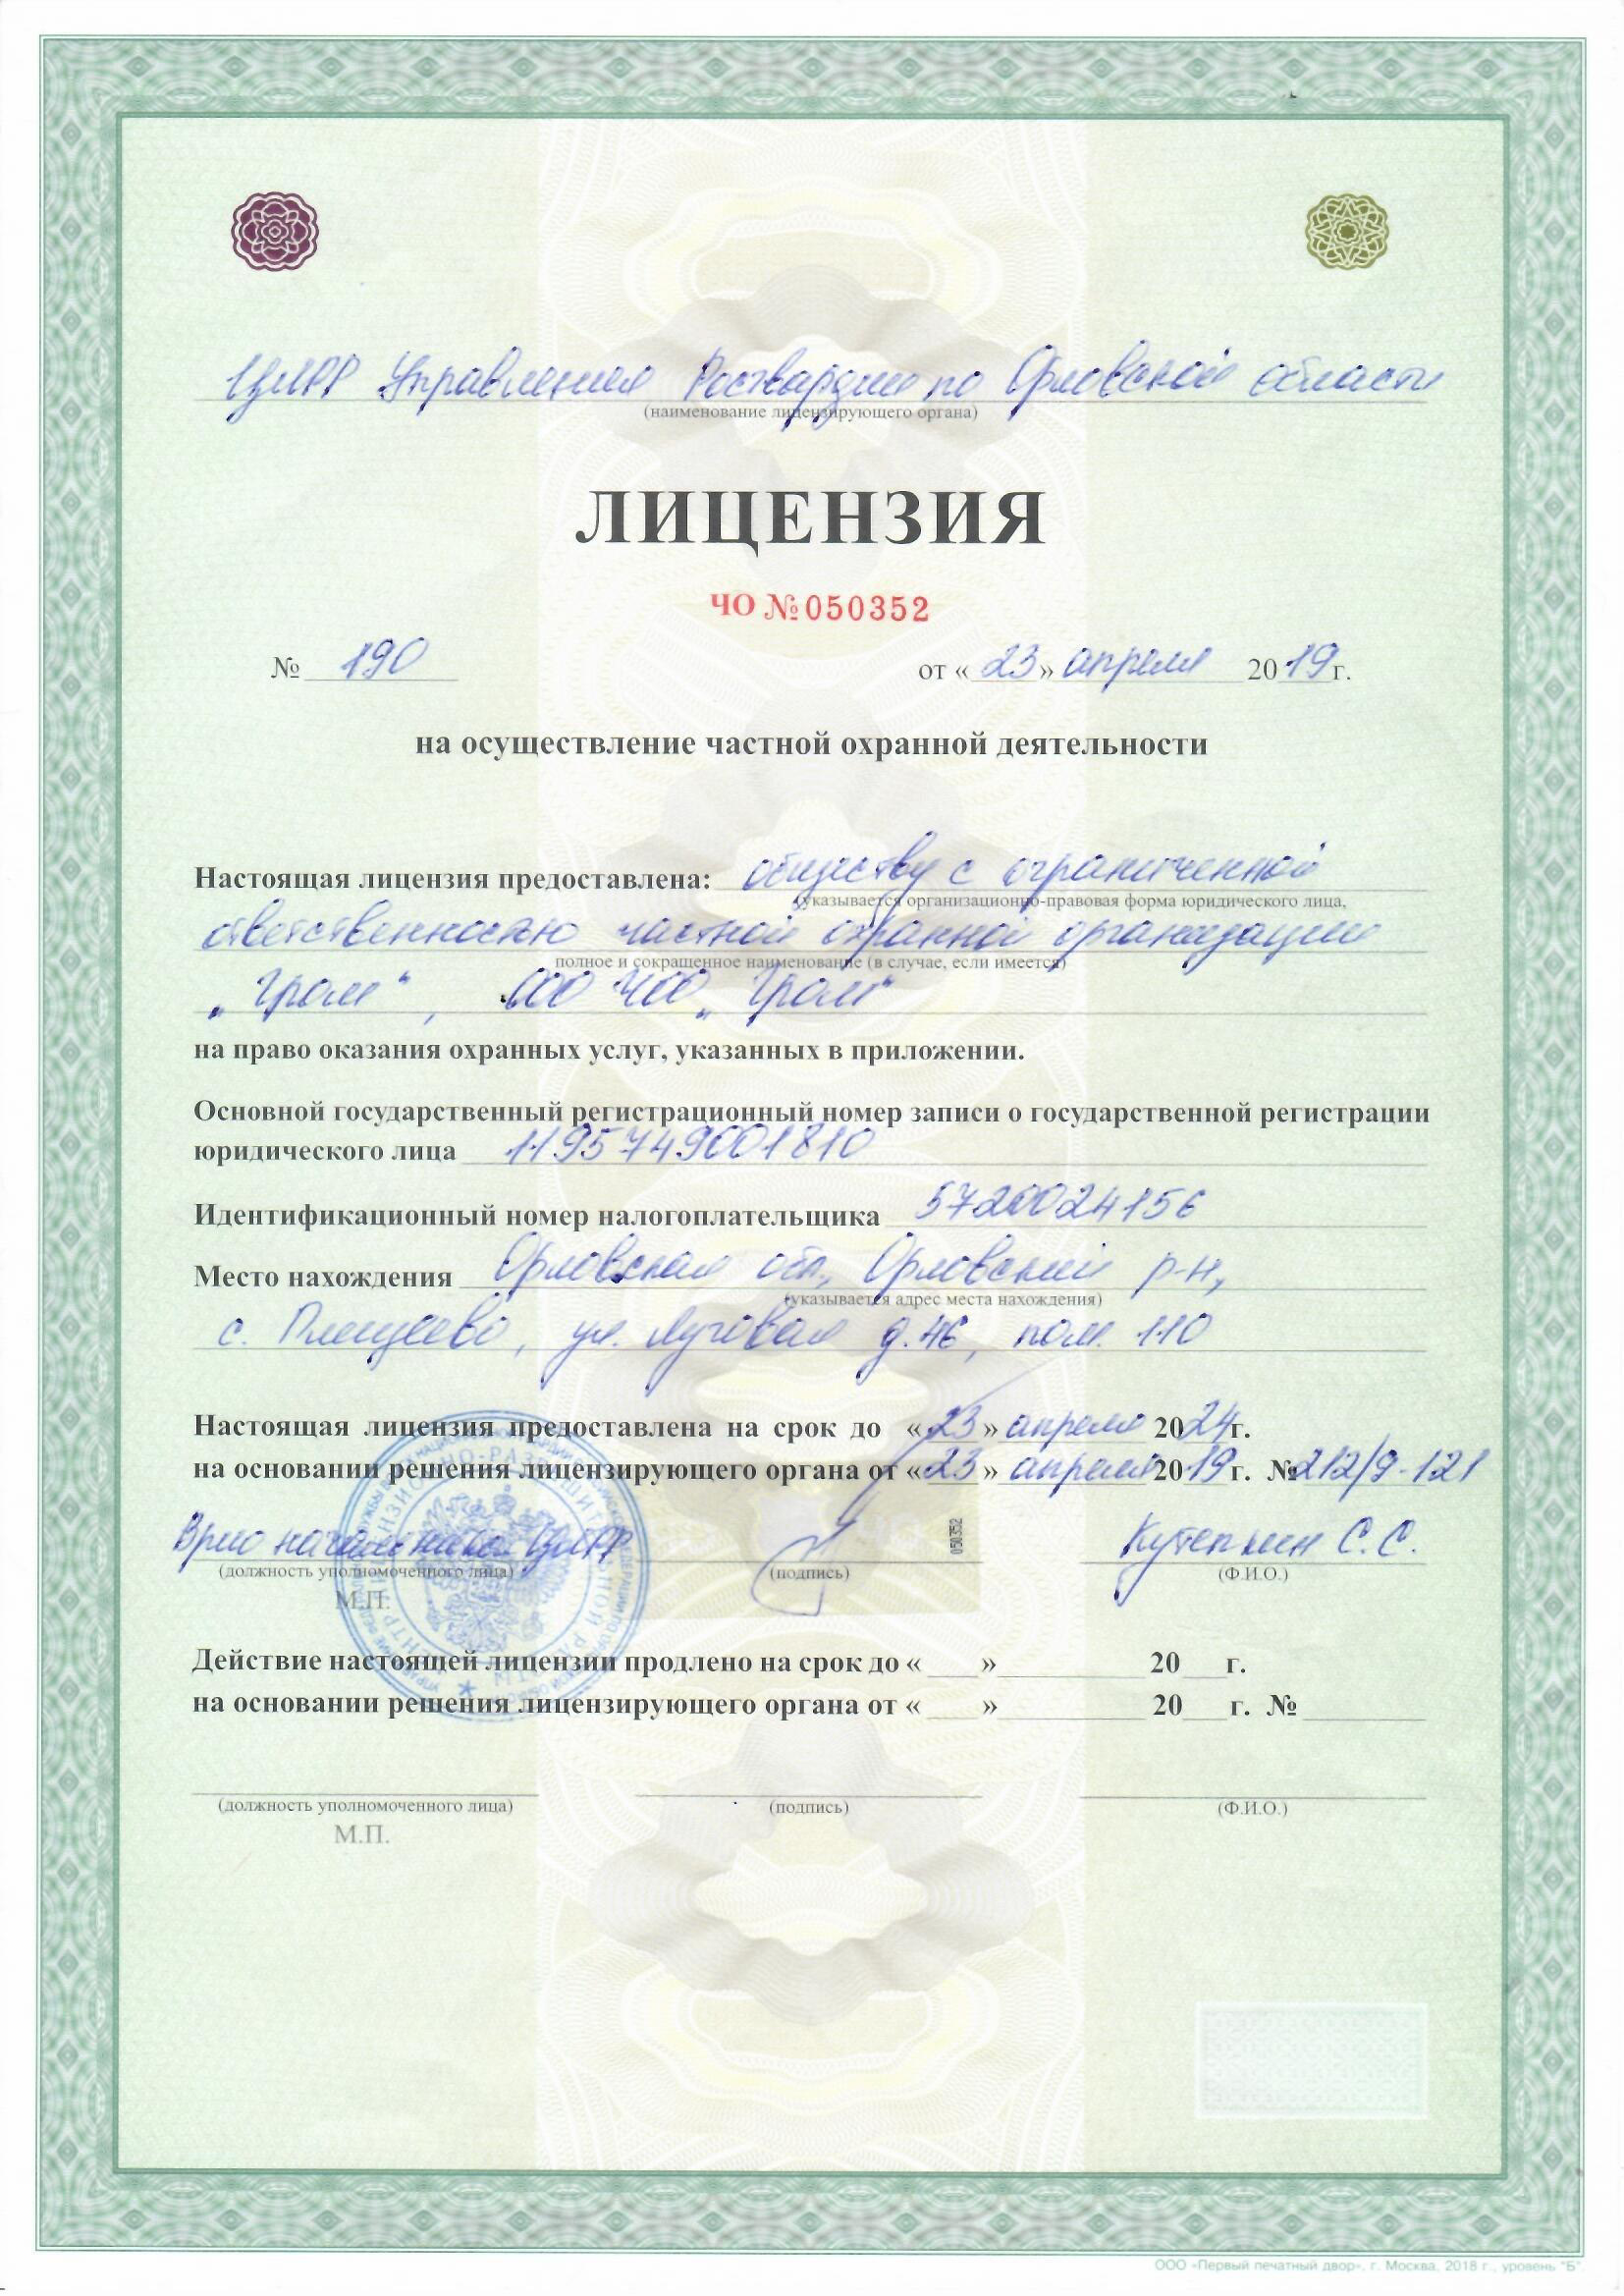 ЦЛРР Управления Росгвардии по Орловской области
(наименование лицензирующего органа)
ЛИЦЕНЗИЯ
ЧО № 050352
№ 190 от « 23 » апреля 2019 г.
на осуществление частной охранной деятельности
Настоящая лицензия предоставлена: обществу с ограниченной
(указывается организационно-правовая форма юридического лица,
ответственностью частной охранной организации
полное и сокращенное наименование (в случае, если имеется)
„Гром“, ООО ЧОО „Гром“
на право оказания охранных услуг, указанных в приложении.
Основной государственный регистрационный номер записи о государственной регистрации
юридического лица 1195749001810
Идентификационный номер налогоплательщика 5720024156
Место нахождения Орловская обл., Орловский р-н,
(указывается адрес места нахождения)
с. Плещеево, ул. Луговая д. 46, пом. 110
Настоящая лицензия предоставлена на срок до « 23 » апреля 2024 г.
на основании решения лицензирующего органа от « 23 » апреля 2019 г. № 212/9-121
Врио начальника ЦЛРР
050352
Кутепкин С.С.
(должность уполномоченного лица) (подпись) (Ф.И.О.)
М.П.
Действие настоящей лицензии продлено на срок до « ___ » __________ 20 ___ г.
на основании решения лицензирующего органа от « ___ » __________ 20 ___ г. № ________
(должность уполномоченного лица) (подпись) (Ф.И.О.)
М.П.
ООО «Первый печатный двор», г. Москва, 2018 г., уровень "Б"